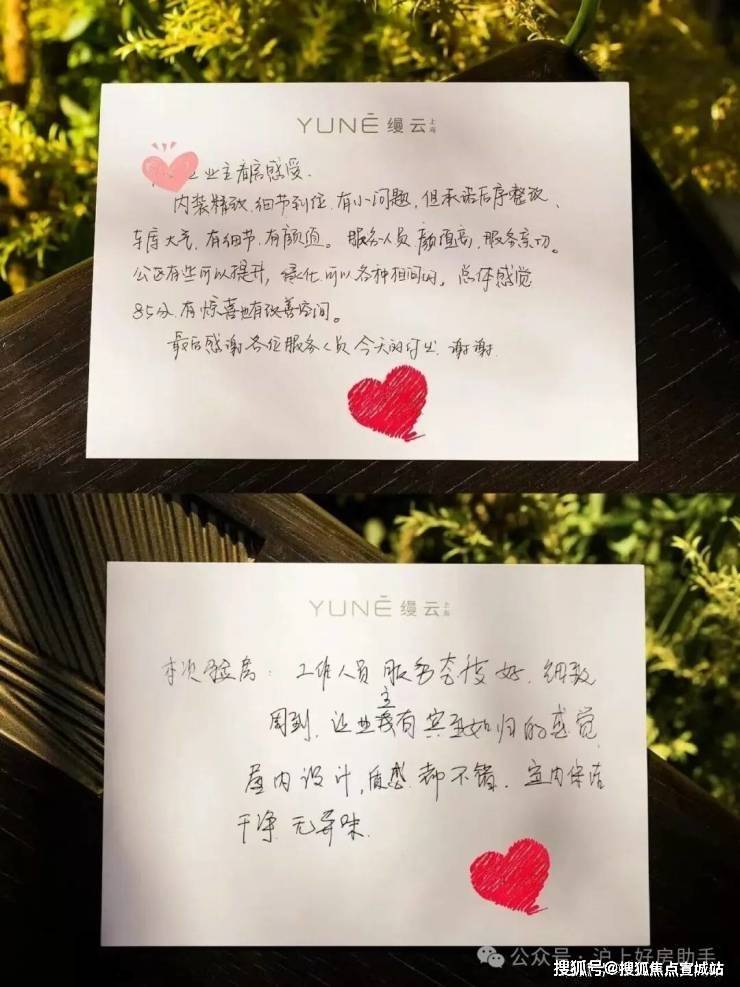 YUNĒ 缦云 上海
业主看房感受.
内装精致.细节到位.有小问题,但承诺后序整改、
车库大气,有细节.有颜值。服务人员.颜值高,服务亲切。
公区有些可以提升,绿化可以各种相间的,总体感觉
85分.有惊喜也有改善空间。
最后感谢各位服务人员今天的付出.谢谢.
YUNĒ 缦云 上海
本次验房:工作人员服务态度好.细致
周到,让业主有宾至如归的感觉
屋内设计,质感都不错.室内保洁
干净.无异味.
公众号·沪上好房助手
搜狐号@搜狐焦点宣城站